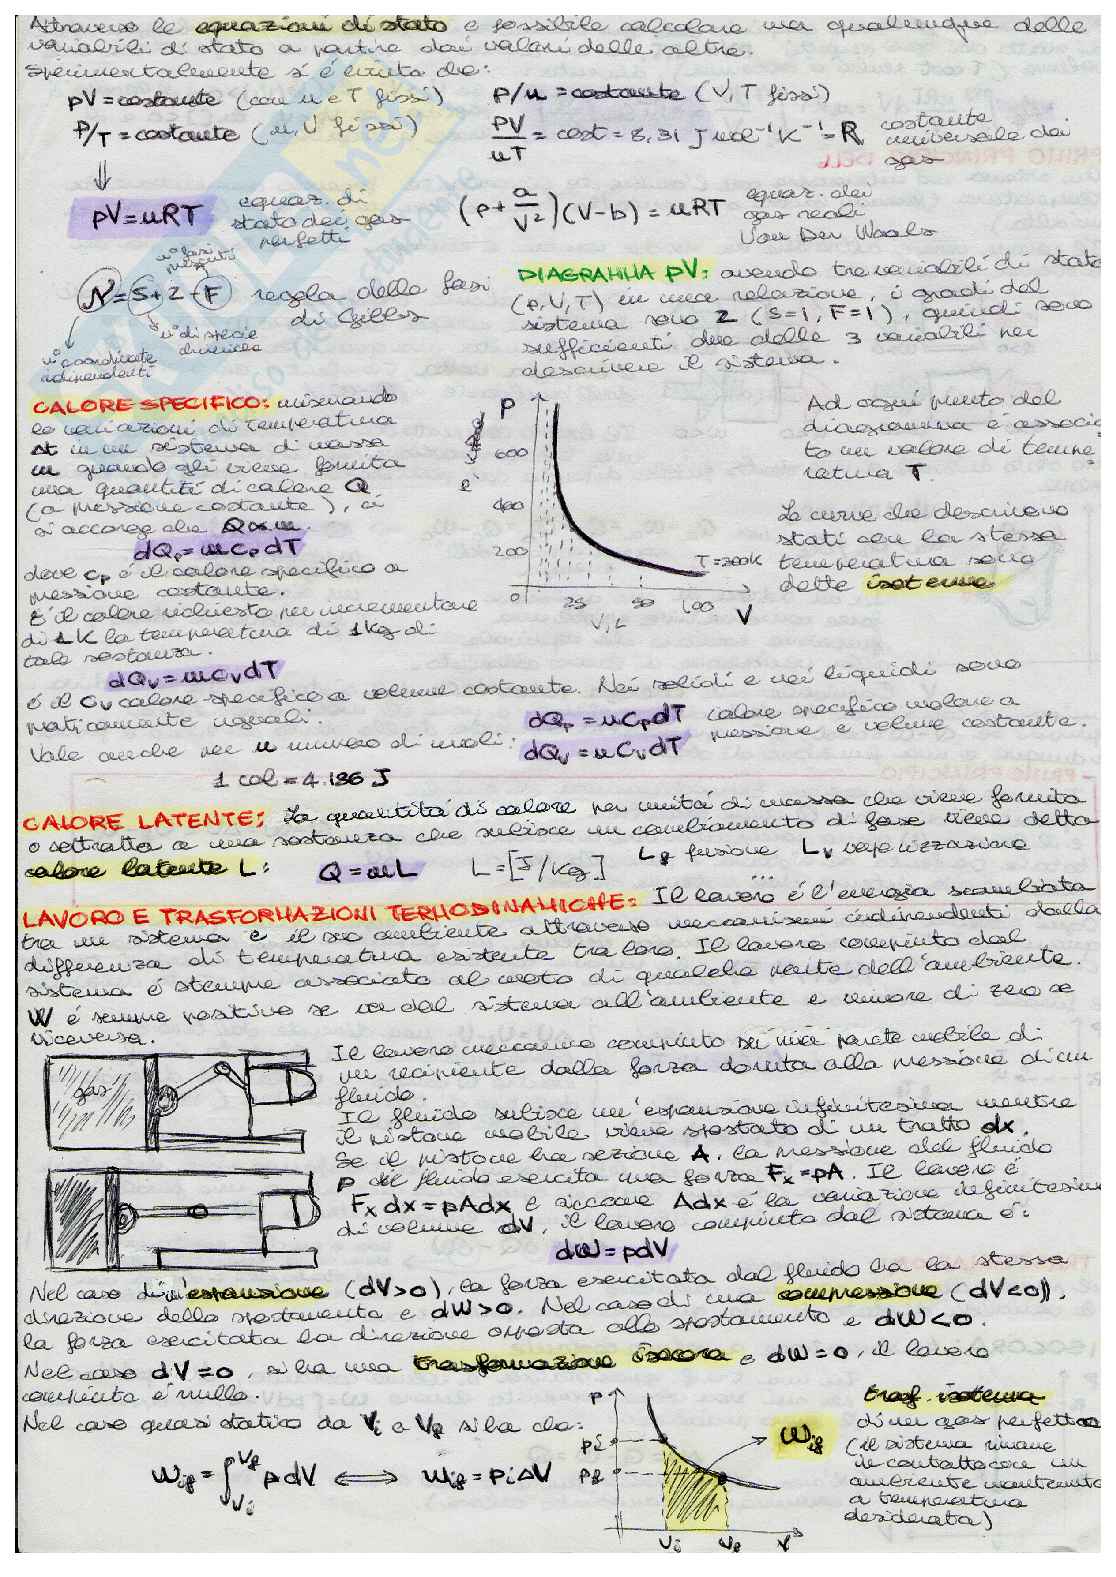 Attraverso le equazioni di stato è possibile calcolare una qualunque delle
variabili di stato a partire dai valori delle altre.
Sperimentalmente si è visto che:
pV = costante (con n e T fissi)
p/n = costante (V, T fissi)
P/T = costante (n, V fissi)
PV/nT = cost = 8,31 J mol⁻¹ K⁻¹ = R costante universale dei gas
⇓
pV = nRT equaz. di stato dei gas perfetti
(p + a/V²)(V-b) = nRT equaz. dei gas reali Van Der Waals
n° fasi presenti
N = S + 2 - F regola delle fasi di Gibbs
n° di specie chimiche
n° coordinate indipendenti
DIAGRAMMA pV: avendo tre variabili di stato
(p, V, T) in una relazione, i gradi del
sistema sono 2 (S=1, F=1), quindi sono
sufficienti due delle 3 variabili per
descrivere il sistema.
CALORE SPECIFICO: misurando
le variazioni di temperatura
Δt in un sistema di massa
m quando gli viene fornita
una quantità di calore Q
(a pressione costante), ci
si accorge che Q ∝ m.
dQp = mcp dT
dove cp è il calore specifico a
pressione costante.
È il calore richiesto per incrementare
di 1K la temperatura di 1Kg di
tale sostanza.
P
600
400
200
0
25
50
100
V
V, L
T = 300K
Ad ogni punto del
diagramma è associa
to un valore di tempe
ratura T.
Le curve che descrivono
stati con la stessa
temperatura sono
dette isoterme
dQv = mcv dT
è il cv calore specifico a volume costante. Nei solidi e nei liquidi sono
praticamente uguali.
Vale anche per n numero di moli:
dQp = nCp dT
dQv = nCv dT
calore specifico molare a
pressione e volume costante.
1 cal = 4.186 J
CALORE LATENTE: La quantità di calore per unità di massa che viene fornita
o sottratta a una sostanza che subisce un cambiamento di fase viene detta
calore latente L: Q = mL L = [J/Kg] Lf fusione Lv vaporizzazione
...
LAVORO E TRASFORMAZIONI TERMODINAMICHE: Il lavoro è l'energia scambiata
tra un sistema e il suo ambiente attraverso meccanismi indipendenti dalla
differenza di temperatura esistente tra loro. Il lavoro compiuto dal
sistema è sempre associato al moto di qualche parte dell'ambiente.
W è sempre positivo se va dal sistema all'ambiente e minore di zero se
viceversa.
gas
Il lavoro meccanico compiuto su una parete mobile di
un recipiente dalla forza dovuta alla pressione di un
fluido.
Il fluido subisce un'espansione infinitesima mentre
il pistone mobile viene spostato di un tratto dx.
Se il pistone ha sezione A, la pressione del fluido
p del fluido esercita una forza Fx = pA. Il lavoro è
Fx dx = pAdx e siccome Adx è la variazione infinitesima
di volume dV, il lavoro compiuto dal sistema è:
dW = pdV
Nel caso di un'espansione (dV>0), la forza esercitata dal fluido ha la stessa
direzione dello spostamento e dW>0. Nel caso di una compressione (dV<0),
la forza esercitata ha direzione opposta allo spostamento e dW<0.
Nel caso dV=0, si ha una trasformazione isocora e dW=0, il lavoro
compiuto è nullo.
Nel caso quasi statico da Vi a Vf si ha che:
Wif = ∫ Vi Vf p dV ⟺ Wif = pi ΔV
P
pi
pf
Vi
Vf
V
Wif
trasf. isoterma
di un gas perfetto
(il sistema rimane
in contatto con un
ambiente mantenuto
a temperatura
desiderata)